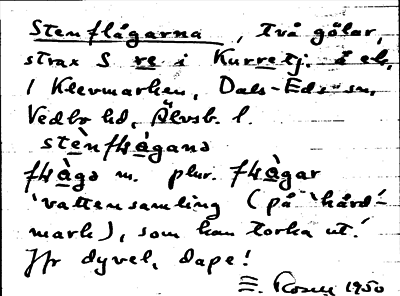 Stenflågarna, två gölar,
strax S re i Kurretj. å ek.
1 Klevmarken, Dals-Eds sn,
Vedbo hd, Älvsb. l.
stènflàganɘ
flàgɘ m. plur. flàgar
'vattensamling (på hård-
mark), som kan torka ut.'
Jfr dyvel, dape!
E. Rosell 1950